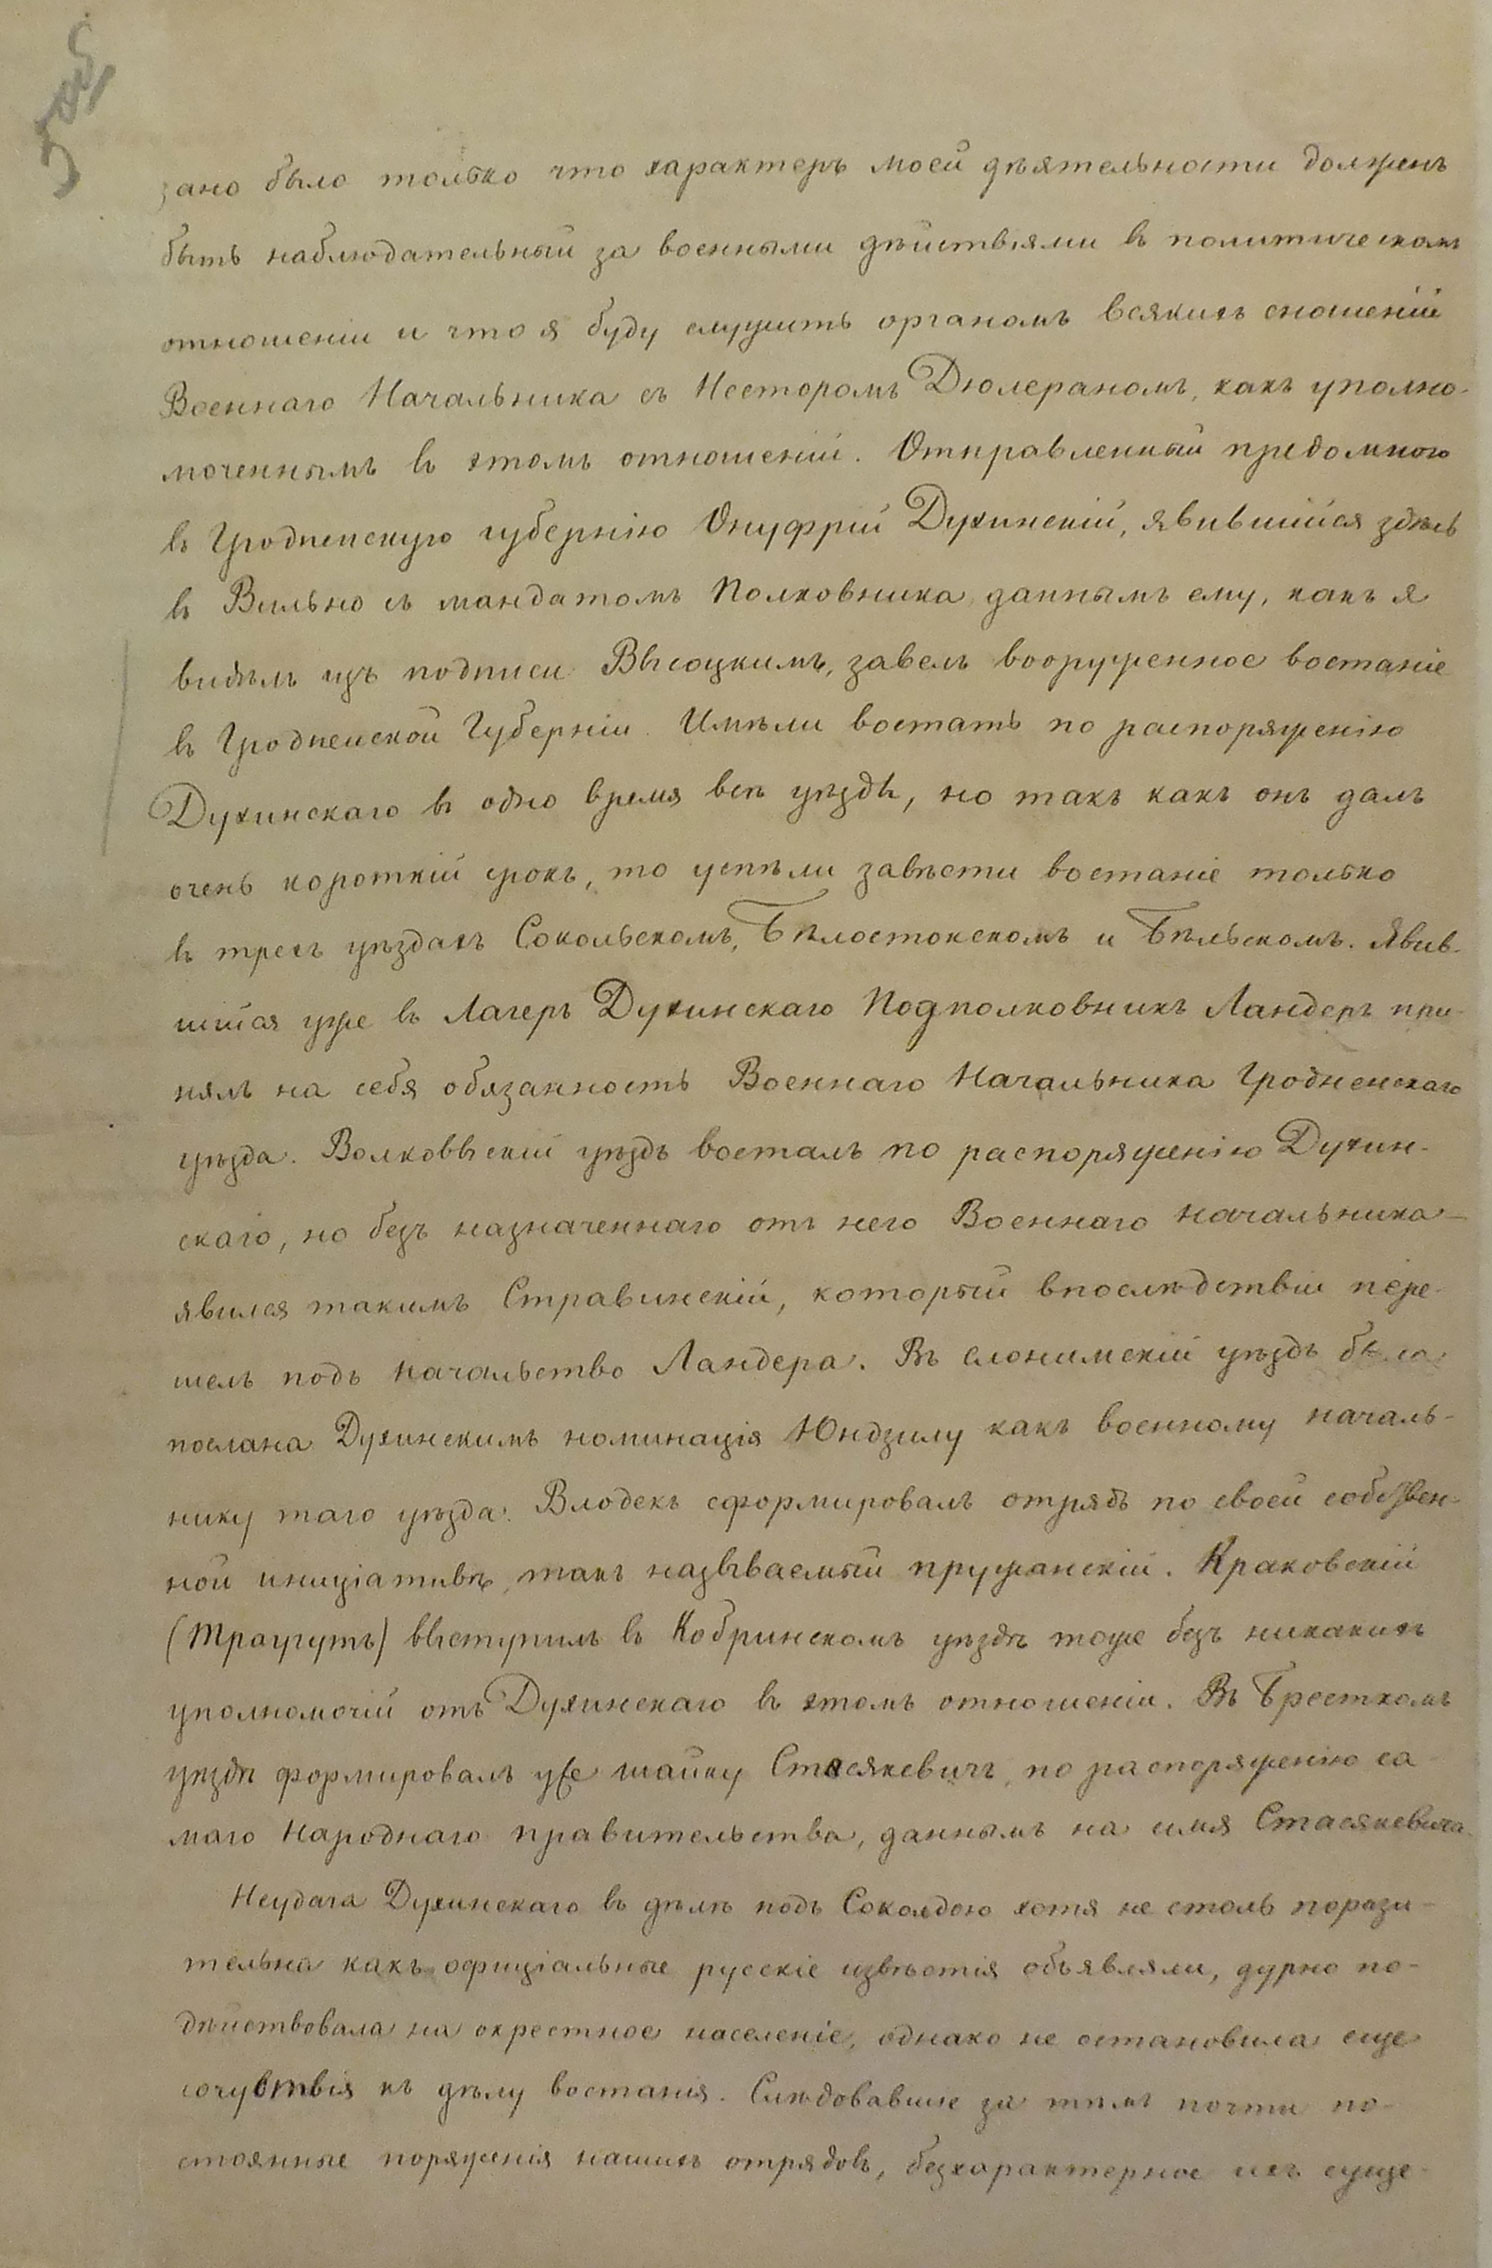 5 об
зано было только что характеръ моей дѣятельности долженъ
быть наблюдательный за военными дѣйствіями въ политическомъ
отношеніи и что я буду служить органомъ всякихъ сношеній
Военнаго Начальника съ Несторомъ Дюлераномъ, какъ уполно-
моченнымъ въ этомъ отношеніи. Отправленный предомною
въ Гродненскую губернію Онуфрій Духинскій, явившійся здѣсь
въ Вильно съ мандатомъ Полковника даннымъ ему, какъ я
видѣлъ изъ подписи Высоцкимъ, завелъ вооруженное востаніе
въ Гродненской Губерніи. Имѣли востать по распоряженію
Духинскаго въ одно время всѣ уѣзды, но такъ какъ онъ далъ
очень короткій срокъ, то успѣли завѣсти востаніе только
въ трехъ уѣздахъ Сокольскомъ, Бѣлостокскомъ и Бѣльскомъ. Явив-
шійся уже въ Лагерь Духинскаго Подполковникъ Ландеръ при-
нялъ на себя обязанность Военнаго Начальника Гродненскаго
уѣзда. Волковыскій уѣздъ восталъ по распоряженію Духин-
скаго, но безъ назначеннаго отъ него Военнаго начальника —
явился такимъ Стравинскій, который впослѣдствіи пере-
шелъ подъ начальство Ландера. Въ слонимскій уѣздъ была
послана Духинскимъ номинація Юндзилу какъ военному началь-
нику таго уѣзда. Влодекъ сформировалъ отрядъ по своей собствен-
ной иниціативѣ, такъ называемый пружанскій. Краковскій
(Траугутъ) выступилъ въ Кобринскомъ уѣздѣ тоже безъ никакихъ
уполномочій отъ Духинскаго въ этомъ отношеніи. Въ Брестскомъ
уѣздѣ формировалъ уже шайку Стасякевичъ, по распоряженію са-
маго Народнаго правительства, даннымъ на имя Стасякевича.
Неудача Духинскаго въ дѣлѣ подъ Соколдою хотя не столь порази-
тельна какъ офиціальные русскіе извѣстія объявляли, дурно по-
дѣйствовала на окрестное населеніе, однако не остановила еще
сочувствія къ дѣлу востанія. Слѣдовавшіе за тѣмъ почти по-
стоянные пораженія нашихъ отрядовъ, безхарактерное ихъ суще-